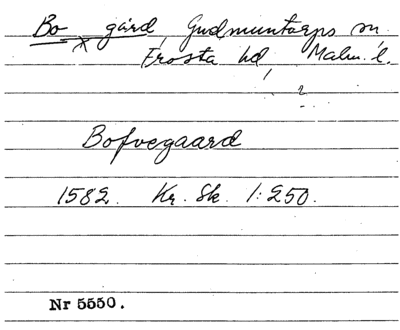 Bo gård, Gudmuntorps sn
x
Frosta hd, Malm. l.
?
Bofvegaard
1582. Kr. Sk. 1:250.
Nr 5550.